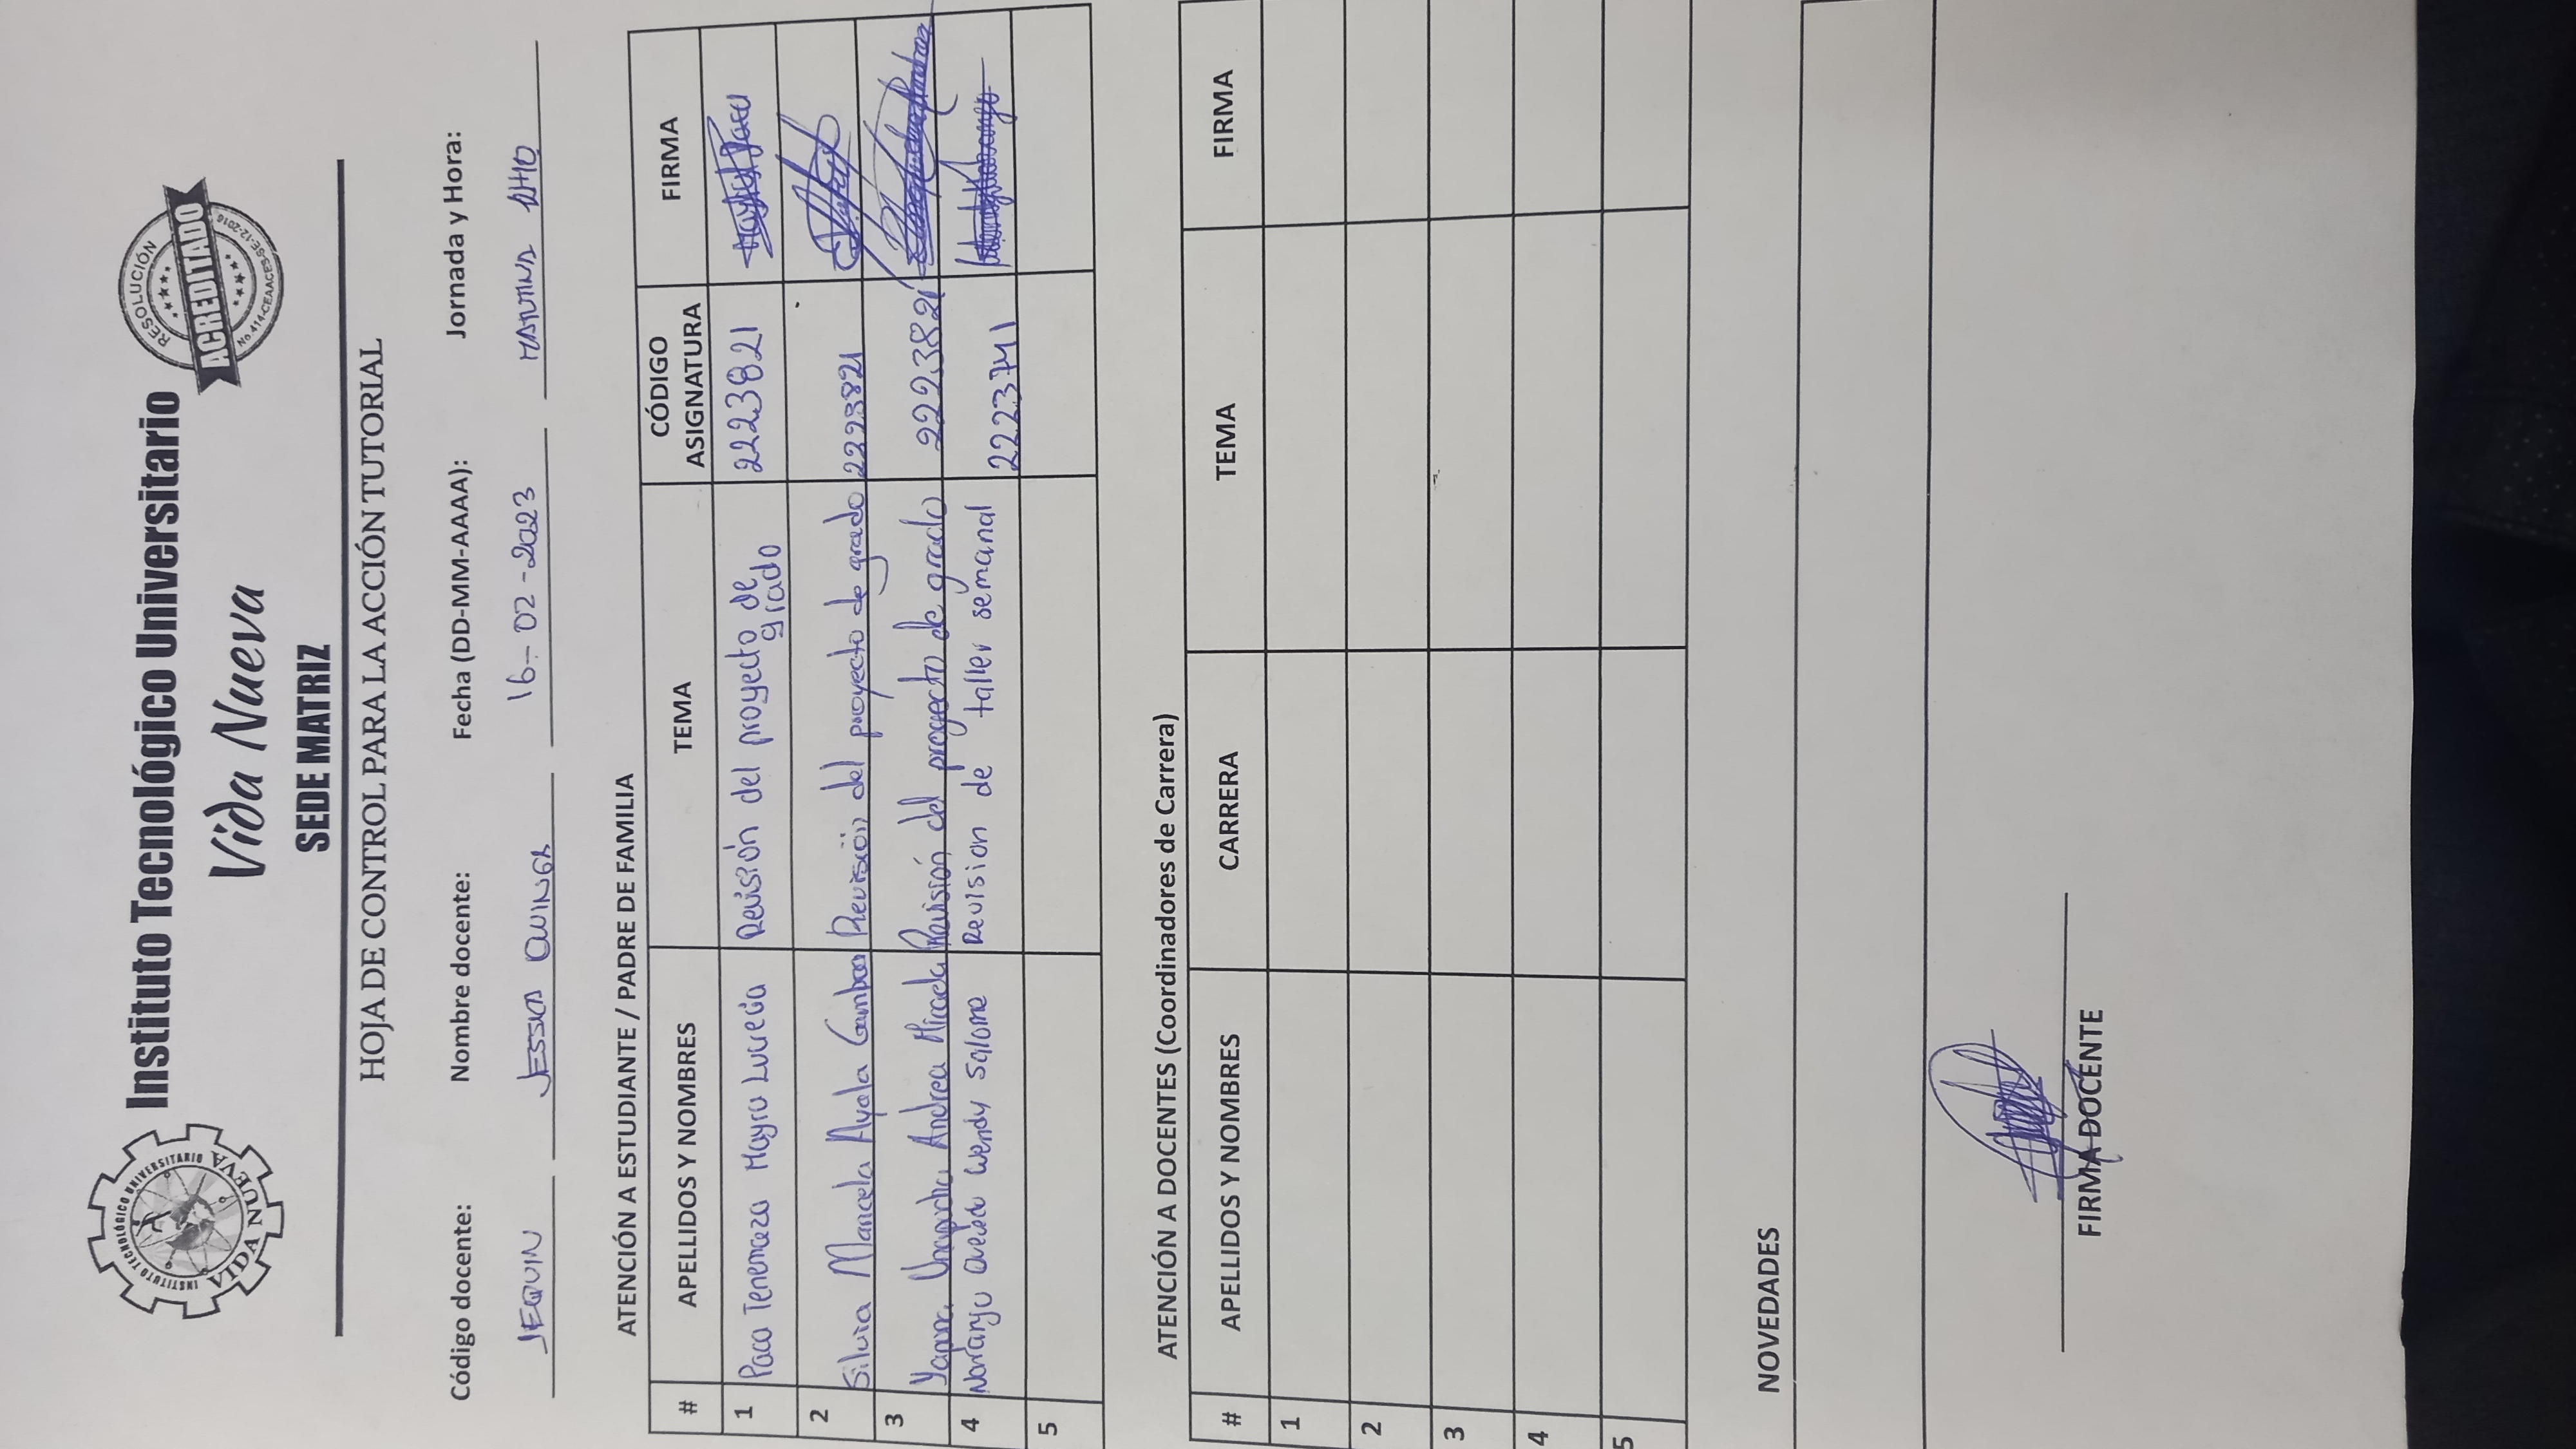 INSTITUTO TECNOLÓGICO UNIVERSITARIO
VIDA NUEVA
Instituto Tecnológico Universitario
Vida Nueva
SEDE MATRIZ
RESOLUCIÓN
ACREDITADO
No.414-CEAACES-SE-12-2016
HOJA DE CONTROL PARA LA ACCIÓN TUTORIAL
Código docente: Nombre docente: Fecha (DD-MM-AAAA): Jornada y Hora:
JEQUIN JESSICA QUINGA 16-02-2023 MATUTINA
ATENCIÓN A ESTUDIANTE / PADRE DE FAMILIA
# APELLIDOS Y NOMBRES TEMA CÓDIGO ASIGNATURA FIRMA
1 Paca Tenemaza Mayra Lucrecia Revisión del proyecto de grado 2223821
2 Silvia Marcela Ayala Gamboa Revisión del proyecto de grado 2223821
3 Andrea Micaela Revisión del proyecto de grado 2223821
4 Naranjo Quevedo Wendy Salome Revision de taller semanal 2223741
5
ATENCIÓN A DOCENTES (Coordinadores de Carrera)
# APELLIDOS Y NOMBRES CARRERA TEMA FIRMA
1
2
3
4
5
NOVEDADES
FIRMA DOCENTE